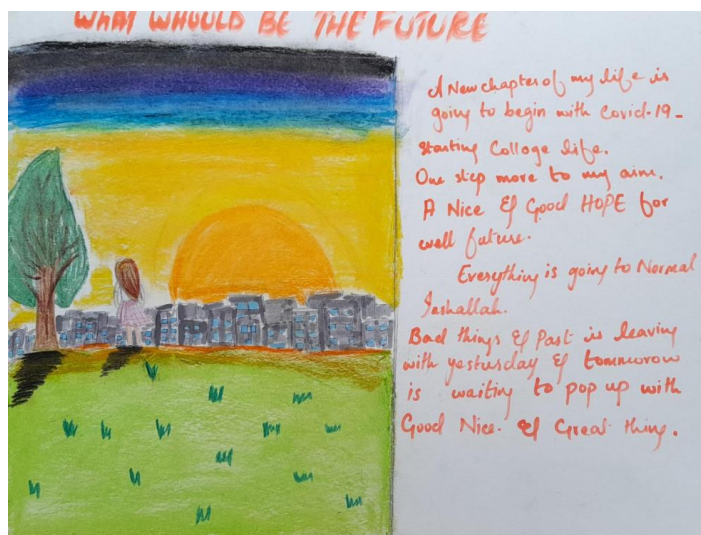 WHAT WHOULD BE THE FUTURE
A New chapter of my life is
going to begin with Covid-19-
Starting Colloge life.
One step more to my aim.
A Nice & Good HOPE for
well future.
Everything is going to Normal
Inshallah.
Bad things & Past is leaving
with yesturday & tommorow
is waiting to pop up with
Good Nice. & Great thing.